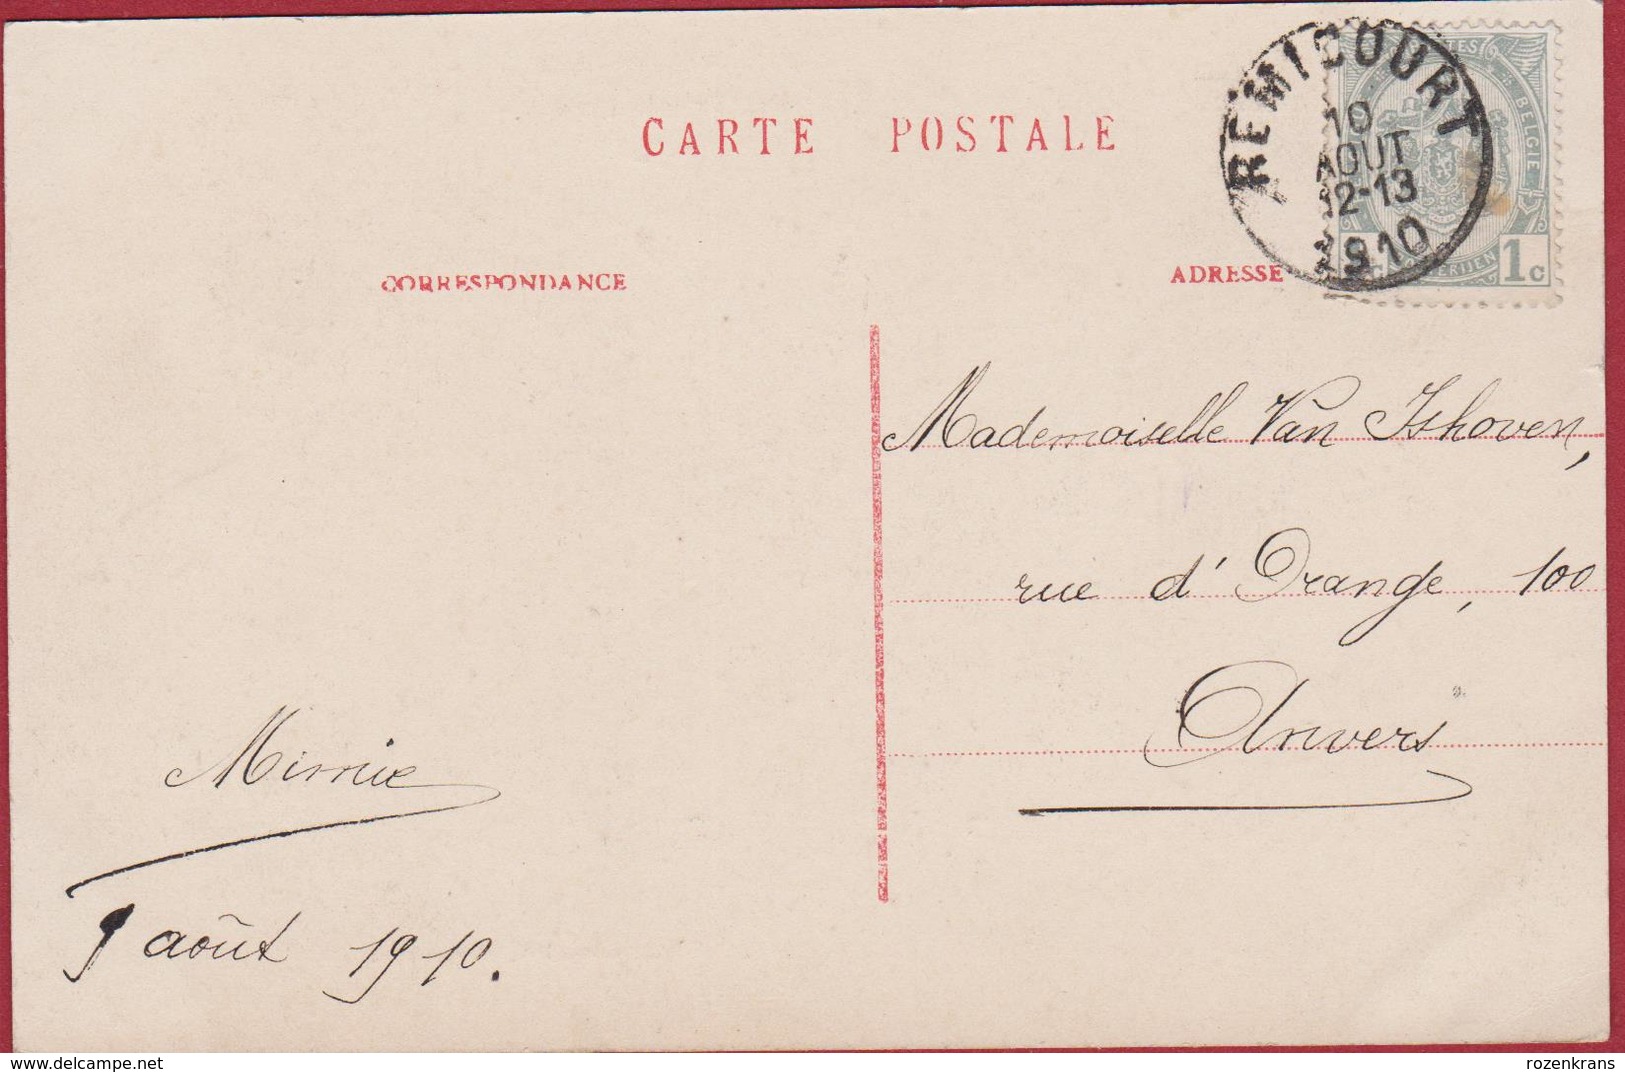 CARTE POSTALE
REMICOURT
10
AOUT
12-13
1910
BELGIE
1c
CORRESPONDANCE
ADRESSE
Mademoiselle Van Ishoven,
rue d'Orange, 100
Anvers
Mimie
9 août 1910.
www.delcampe.net
rozenkrans